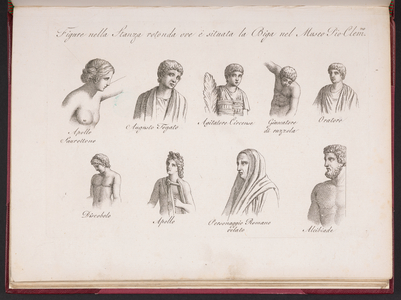 Figure nella Stanza rotonda ove è situata la Biga nel Museo Pio Clem.
Apollo
Saurottono
Augusto Togato
Agitatore Circense
Giuocatore
di ruzzola
Oratore
Discobolo
Apollo
Personaggio Romano
velato
Alcibiade